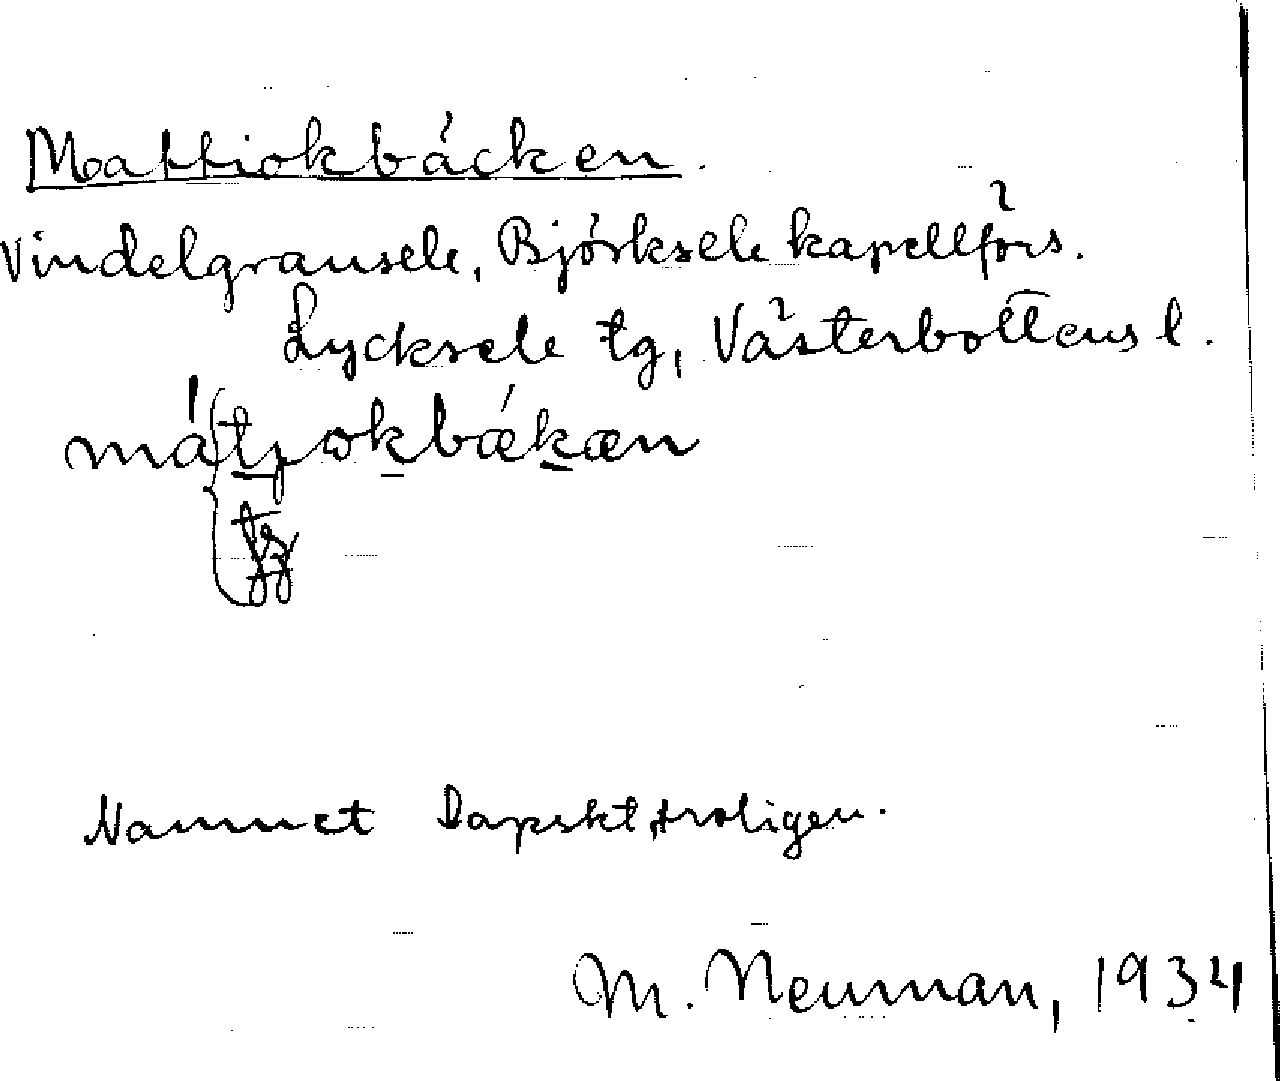 Mattiokbäcken.
Vindelgransele, Björksele kapellförs.
Lycksele tg, Västerbottens l.
Namnet lapskt, troligen.
M. Neuman, 1934